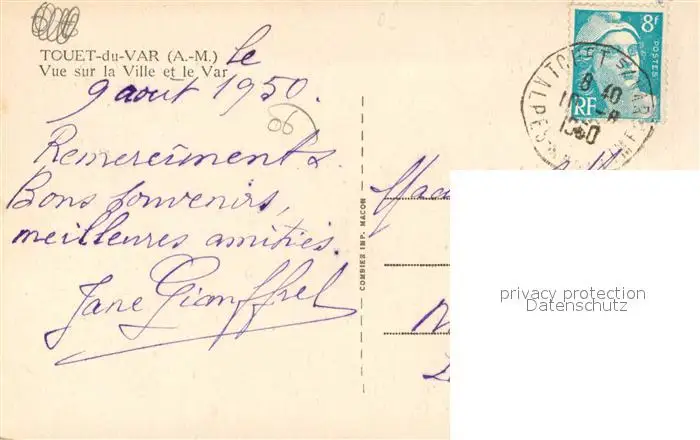 TOUET-du-VAR (A.-M.) le
Vue sur la Ville et le Var
9 aout 1950.
06
Remerciments
Bons souvenirs,
meilleures amitiés.
Jane Gianffret
COMBIER IMP. MACON
8f
POSTES
RF
TOUET S/ VAR
8 40
10 -8
1950
ALPES MMES
privacy protection
Datenschutz